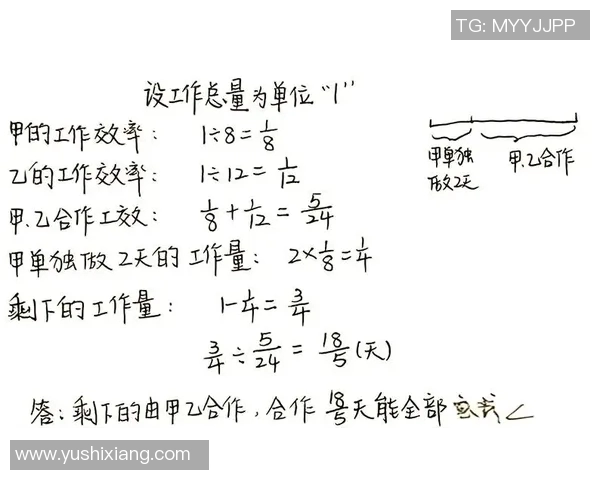 TG: MYYJJPP
设工作总量为单位"1"
甲的工作效率: 1÷8=1/8
乙的工作效率: 1÷12=1/12
甲.乙合作工效: 1/8+1/12=5/24
甲单独做2天的工作量: 2×1/8=1/4
剩下的工作量: 1-1/4=3/4
3/4÷5/24=18/5(天)
答:剩下的由甲乙合作,合作18/5天能全部
甲单独
做2天
甲.乙合作
www.yushixiang.com